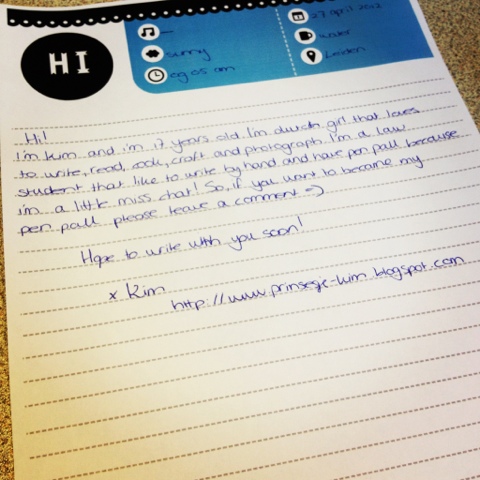 HI
—
27 april 2012
sunny
water
09:05 am
Leiden
Hi!
I'm kim and i'm 17 years old. I'm dutch girl that loves
to write, read, cook, craft and photograph. I'm a law
student that like to write by hand and have pen pall because
i'm a little miss chat! So, if you want to became my
pen pall please leave a comment =)
Hope to write with you soon!
x Kim
http://www.prinsesje-kim.blogspot.com